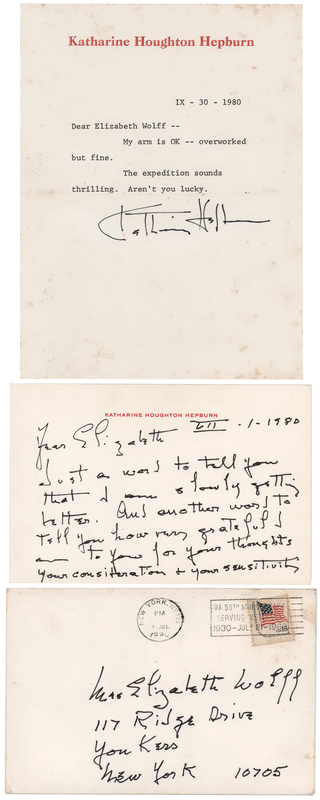 Katharine Houghton Hepburn
IX - 30 - 1980
Dear Elizabeth Wolff --
My arm is OK -- overworked
but fine.
The expedition sounds
thrilling. Aren't you lucky.
Katharine Hepburn
KATHARINE HOUGHTON HEPBURN
VII - 1 - 1980
Dear Elizabeth
Just a word to tell you
that I am slowly getting
better. And another word to
tell you how very grateful I
am to you for your thoughts
your consideration + your sensitivity
NEW YORK, N.Y.
PM
JUL
1980
VA 50TH
SERVING
1930-JULY 21-1980
Mrs Elizabeth Wolff
117 Ridge Drive
Yonkers
New York 10705